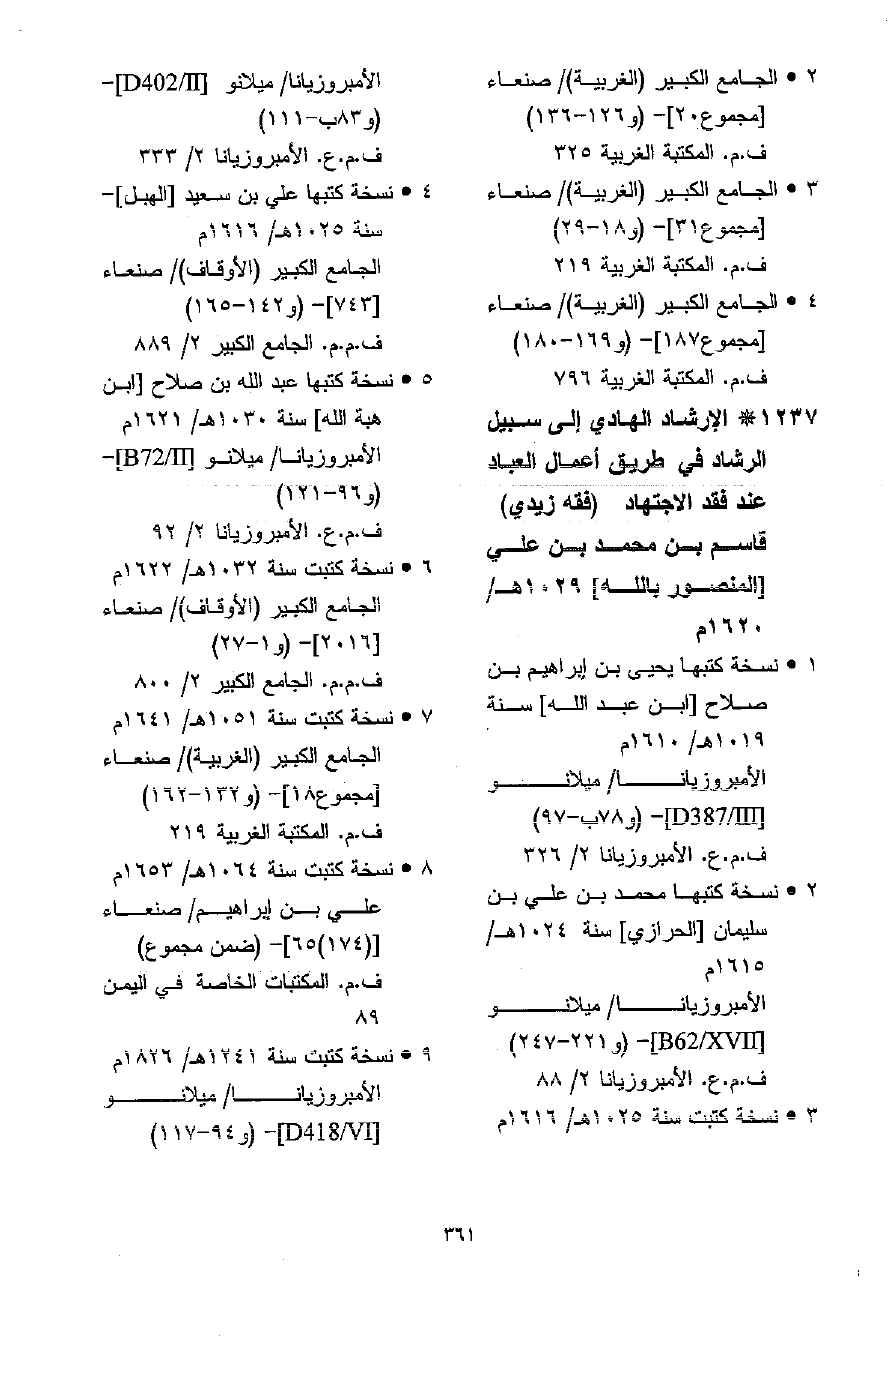 ٢ • الجامع الكبير (الغربية)/ صنعاء
[مجموع٢٠]- (و١٢٦-١٣٦)
ف.م. المكتبة الغربية ٣٢٥
٣ • الجامع الكبير (الغربية)/ صنعاء
[مجموع٣١]- (و١٨-٢٩)
ف.م. المكتبة الغربية ٢١٩
٤ • الجامع الكبير (الغربية)/ صنعاء
[مجموع١٨٧]- (و١٦٩-١٨٠)
ف.م. المكتبة الغربية ٧٩٦
١٢٣٧* الإرشاد الهادي إلى سبيل
الرشاد في طريق أعمال العباد
عند فقد الاجتهاد (فقه زيدي)
قاسم بن محمد بن علي
[المنصور بالله] ١٠٢٩هـ/
١٦٢٠م
١ • نسخة كتبها يحيى بن إبراهيم بن
صلاح [ابن عبد الله] سنة
١٠١٩هـ/ ١٦١٠م
الأمبروزيانا/ ميلانو
[D387/III]- (و٧٨ب-٩٧)
ف.م.ع. الأمبروزيانا ٢/ ٣٢٦
٢ • نسخة كتبها محمد بن علي بن
سليمان [الحرازي] سنة ١٠٢٤هـ/
١٦١٥م
الأمبروزيانا/ ميلانو
[B62/XVII]- (و٢٢١-٢٤٧)
ف.م.ع. الأمبروزيانا ٢/ ٨٨
٣ • نسخة كتبت سنة ١٠٢٥هـ/ ١٦١٦م
الأمبروزيانا/ ميلانو [D402/II]-
(و٨٣ب-١١١)
ف.م.ع. الأمبروزيانا ٢/ ٣٣٣
٤ • نسخة كتبها علي بن سعيد [الهبل]-
سنة ١٠٢٥هـ/ ١٦١٦م
الجامع الكبير (الأوقاف)/ صنعاء
[٧٤٣]- (و١٤٢-١٦٥)
ف.م.م. الجامع الكبير ٢/ ٨٨٩
٥ • نسخة كتبها عبد الله بن صلاح [ابن
هبة الله] سنة ١٠٣٠هـ/ ١٦٢١م
الأمبروزيانا/ ميلانو [B72/II]-
(و٩٦-١٢١)
ف.م.ع. الأمبروزيانا ٢/ ٩٢
٦ • نسخة كتبت سنة ١٠٣٢هـ/ ١٦٢٢م
الجامع الكبير (الأوقاف)/ صنعاء
[٢٠١٦]- (و١-٢٧)
ف.م.م. الجامع الكبير ٢/ ٨٠٠
٧ • نسخة كتبت سنة ١٠٥١هـ/ ١٦٤١م
الجامع الكبير (الغربية)/ صنعاء
[مجموع١٨]- (و١٣٢-١٦٢)
ف.م. المكتبة الغربية ٢١٩
٨ • نسخة كتبت سنة ١٠٦٤هـ/ ١٦٥٣م
علي بن إبراهيم/ صنعاء
[(١٧٤)٦٥]- (ضمن مجموع)
ف.م. المكتبات الخاصة في اليمن
٨٩
٩ • نسخة كتبت سنة ١٢٤١هـ/ ١٨٢٦م
الأمبروزيانا/ ميلانو
[D418/VI]- (و٩٤-١١٧)
٣٦١